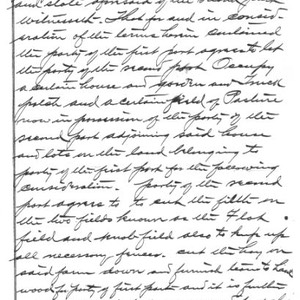 and state
Witnesseth. That for and in consid-
eration of the terms herein contained
the party of the first part agrees to let
the party of the second part Occupy
a certain house and garden and truck
patch and a certain field of Pasture
now in possession of the party of the
second part adjoining said house
and lots on the land belonging to
party of the first part for the following
consideration. Party of the second
part agrees to to cut the filth on
the two fields known as the Flat
field and Knob field also to keep up
all necessary fences. cut the hay on
said farm down and furnish team to haul
wood for party of first part and it is further